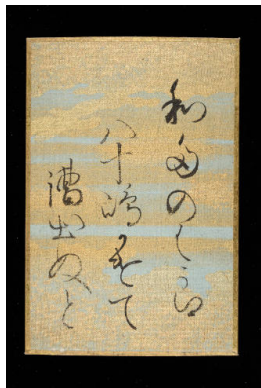 和多のはら
八十嶋かけて
漕出ぬと